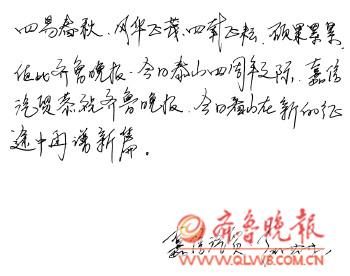 四易春秋、风华正茂、四载耕耘、硕果累累。
值此齐鲁晚报·今日泰山四周年之际，嘉信
汽贸恭祝齐鲁晚报·今日泰山在新的征
途中再谱新篇。
嘉信汽贸
齐鲁晚报
www.QLWB.com.cn